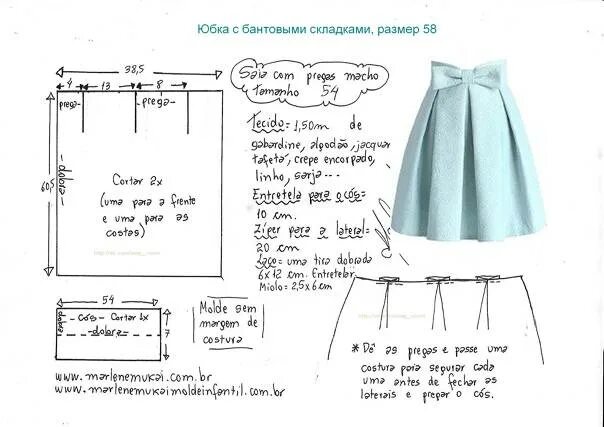 Юбка с бантовыми складками, размер 58
38,5
4 13 8
prega- -prega-
60,5
-dobra-
Cortar 2x
(uma para a frente
e uma para as
costas)
54
dobra
-cós- Cortar 1x
-dobra-
7
Molde sem
margem de
costura
www.marlenemukai.com.br
www.marlenemukaimoldeinfantil.com.br
Saia com pregas macho
tamanho 54
Tecido=1,50m de
gabardine, algodão, jacquar
tafetá, crepe encorpado,
linho, sarja...
Entretela para o cós=
10 cm.
Zíper para a lateral=
20 cm
Laço= uma tira dobrada
6x12 cm. Entretelar
Miolo= 2,5x6cm
* Dê as pregas e passe uma
costura para segurar cada
uma antes de fechar as
laterais e pregar o cós.